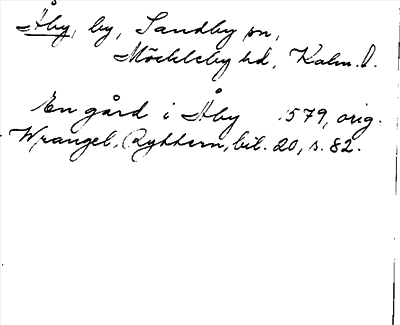 Åby, by, Sandby sn,
Möckleby hd, Kalm. l.
En gård i Åby 1579, orig.
Wrangel, Ryttern, bil. 20, s. 82.